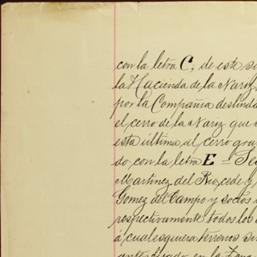 con la letra C, de este
la Hacienda de la Nariz
por la Compañia deslind
el cerro de la Nariz que
esta última, el cerro gor
do, con la letra E
Martinez del Rio, cede y
Gomez del Campo y socios
respectivamente todos los
á cualesquiera terrenos